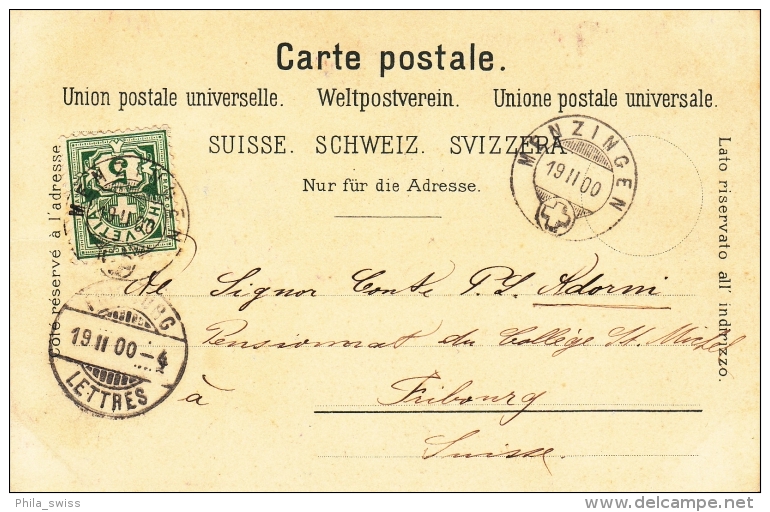 Carte postale.
Union postale universelle. Weltpostverein. Unione postale universale.
SUISSE. SCHWEIZ. SVIZZERA
Nur für die Adresse.
Côté réservé à l'adresse.
Lato riservato all' indirizzo.
5
HELVETIA
MENZINGEN
19 II 00
FRIBOURG
19.II 00-4
LETTRES
Al Signor Conte P. L. Adorni
Pensionnat du Collège St. Michel
à Fribourg
Suisse.
Phila_swiss
delcampe.net